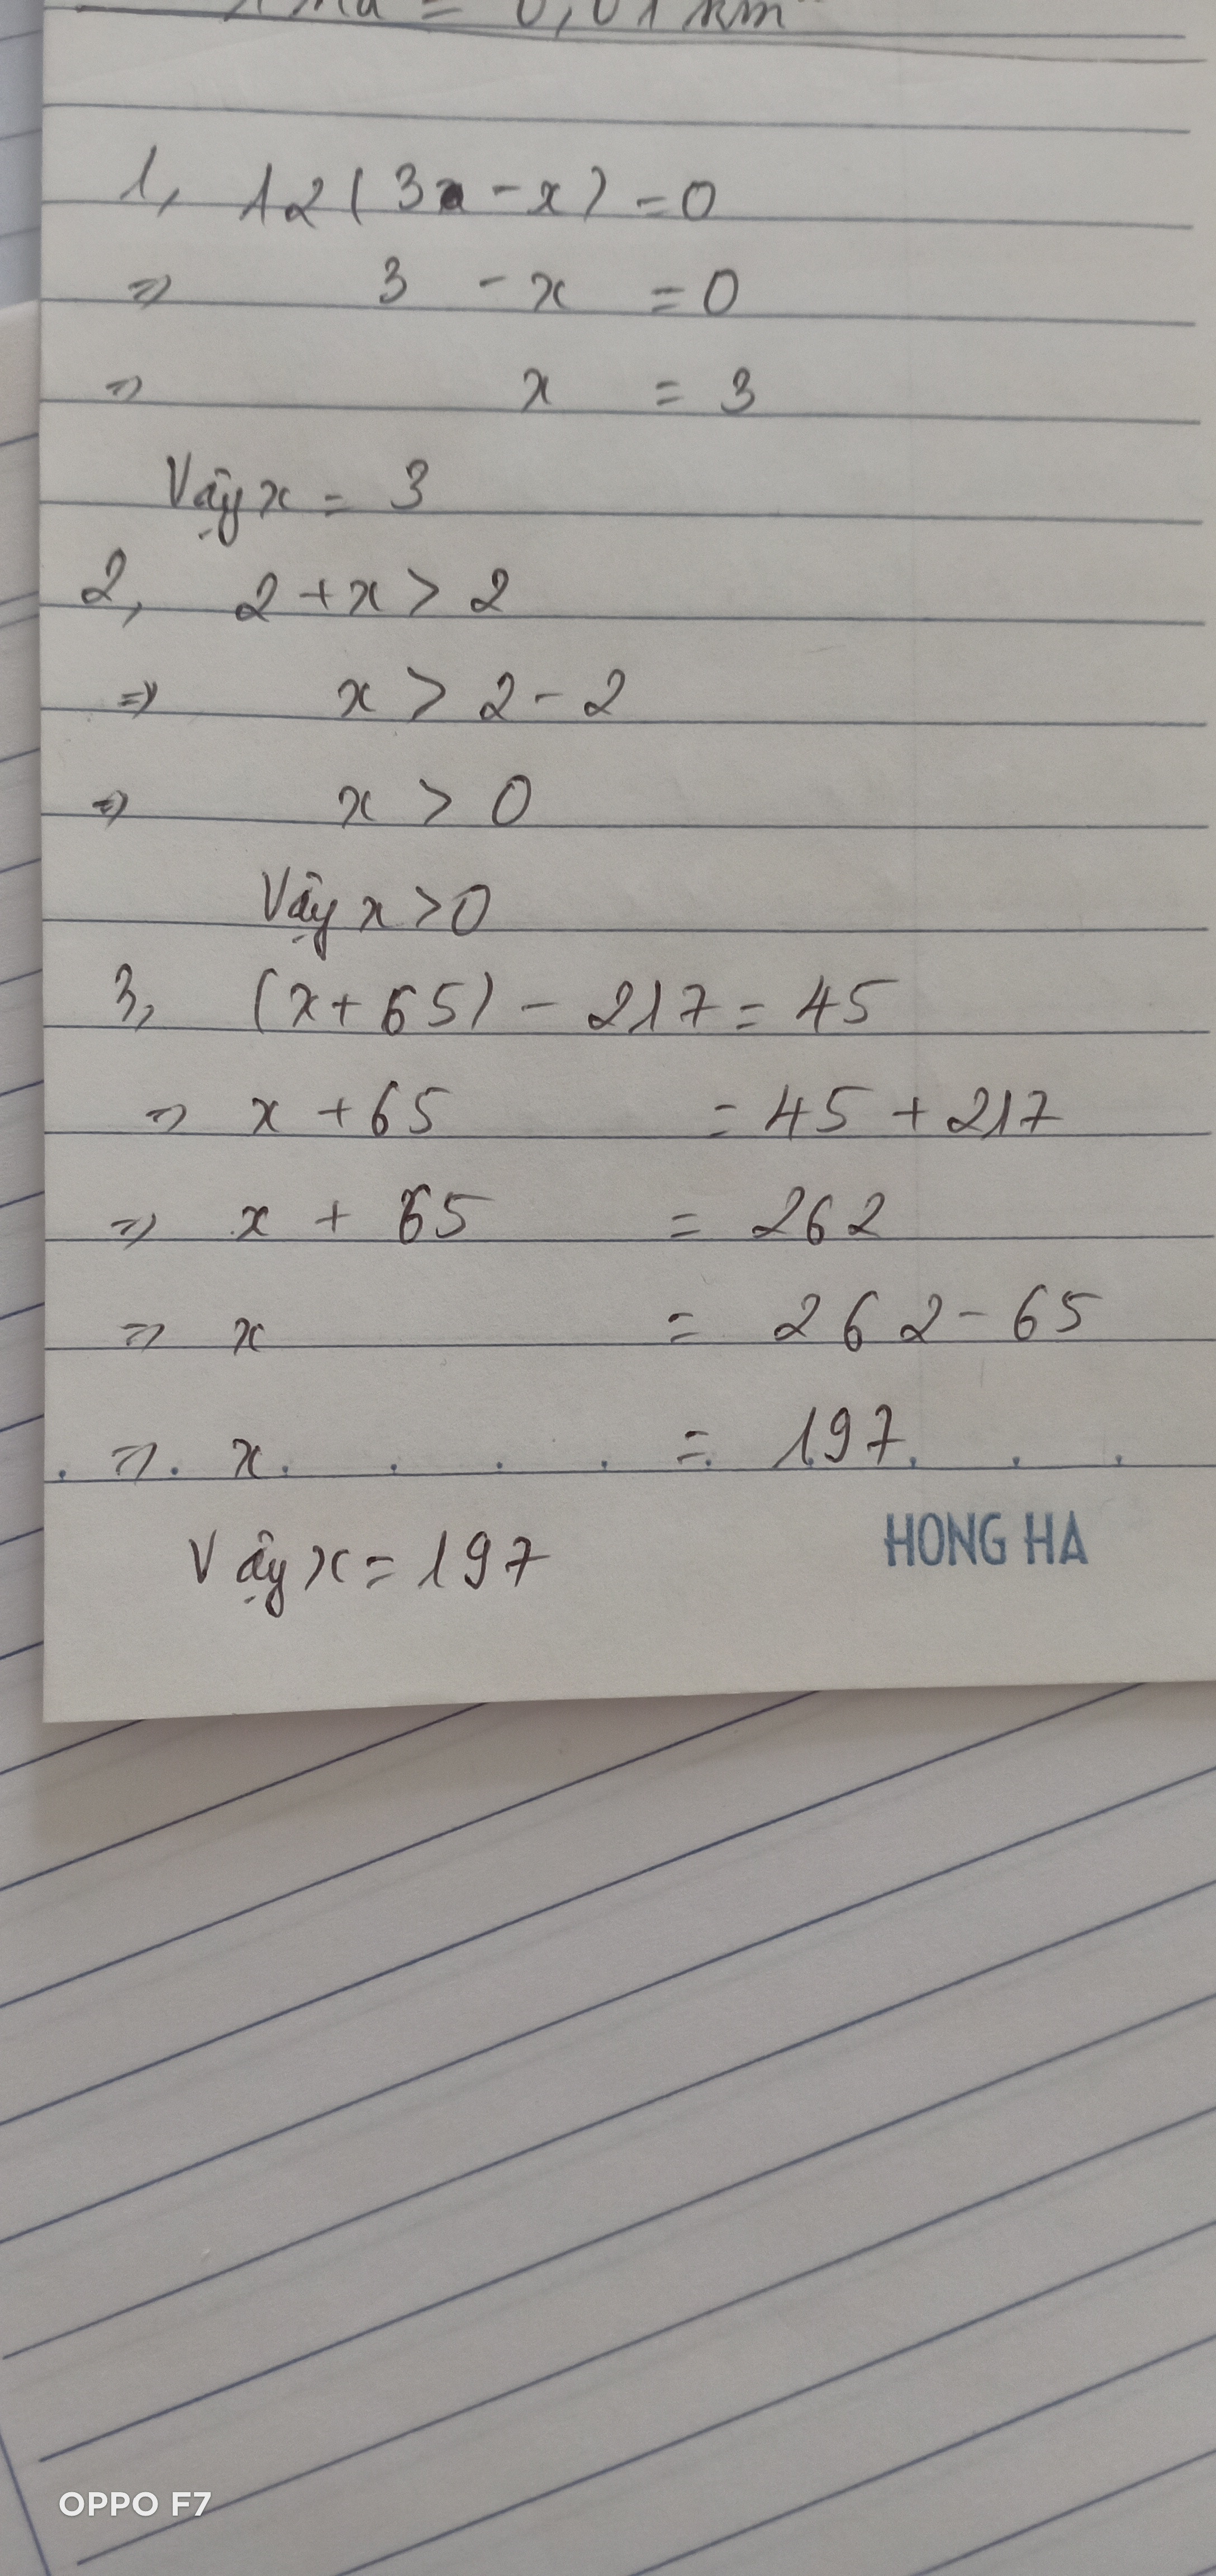 = 0,01 km
1, 12(3 - x) = 0
=> 3 - x = 0
=> x = 3
Vậy x = 3
2, 2 + x > 2
=> x > 2 - 2
=> x > 0
Vậy x > 0
3, (x + 65) - 217 = 45
=> x + 65 = 45 + 217
=> x + 65 = 262
=> x = 262 - 65
=> x = 197
HONG HA
Vậy x = 197
OPPO F7